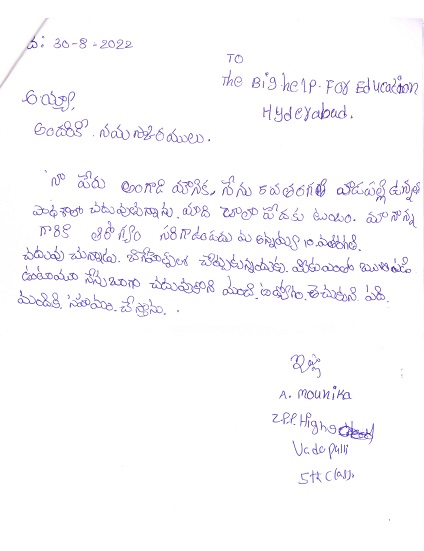 ది: 30-8-2022
TO
The Big help-For Education
Hyderabad.
అయ్యా,
అందరికీ నమస్కారములు.
నా పేరు అంగాడి మౌనిక, నేను 5వ తరగతి వాడపల్లి ఉన్నత
పాఠశాల చదువుతున్నాను. మాది చాలా పేదకు టుంబం. మా నాన్న
గారికి ఆరోగ్యం సరిగా ఉండదు మా అన్నయ్య 10వ తరగతి
చదువు చున్నాడు.
నేను బాగా చదువుకొని మంచి ఉద్యోగం తెచ్చుకుని పది
మందికి సహాయం చేస్తాను.
ఇట్లు
A. Mounika
Z.P.P. High
Vadapalli
5th Class.